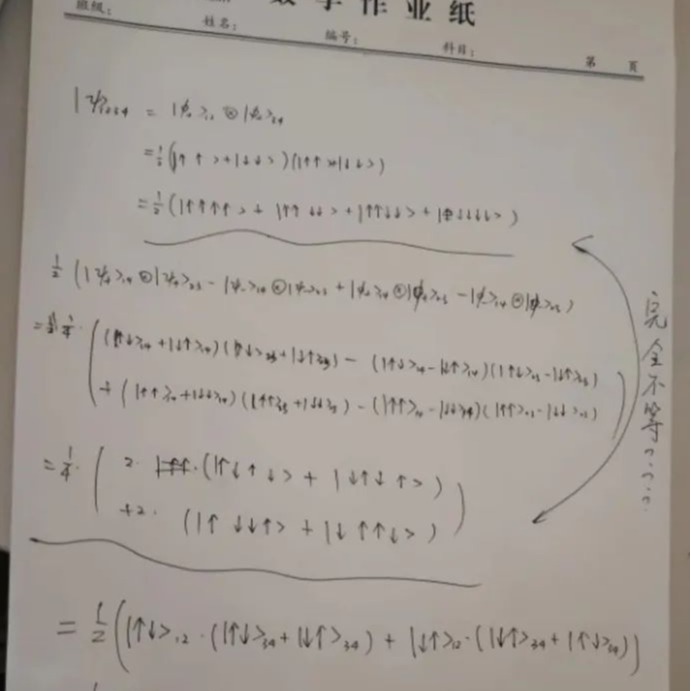 数学作业纸
班级: 姓名: 编号: 科目: 第 页
|ψ>₁₂₃₄ = |φ₊>₁₂ ⊗ |φ₊>₃₄
= ½ (|↑↑> + |↓↓>)(|↑↑> + |↓↓>)
= ½ (|↑↑↑↑> + |↑↑↓↓> + |↑↑↓↓> + |↓↓↓↓>)
½ (|ψ₊>₁₄ ⊗ |ψ₊>₂₃ - |ψ₋>₁₄ ⊗ |ψ₋>₂₃ + |φ₊>₁₄ ⊗ |φ₊>₂₃ - |φ₋>₁₄ ⊗ |φ₋>₂₃)
= ½ · ½ · ( (|↑↓>₁₄ + |↓↑>₁₄)(|↑↓>₂₃ + |↓↑>₂₃) - (|↑↓>₁₄ - |↓↑>₁₄)(|↑↓>₂₃ - |↓↑>₂₃)
+ (|↑↑>₁₄ + |↓↓>₁₄)(|↑↑>₂₃ + |↓↓>₂₃) - (|↑↑>₁₄ - |↓↓>₁₄)(|↑↑>₂₃ - |↓↓>₂₃) )
= ¼ · ( 2 · (|↑↓↑↓> + |↓↑↓↑>)
+ 2 · (|↑↓↓↑> + |↓↑↑↓>) )
完全不等？？？
= ½ (|↑↓>₁₂ · (|↑↓>₃₄ + |↓↑>₃₄) + |↓↑>₁₂ · (|↓↑>₃₄ + |↑↓>₃₄))